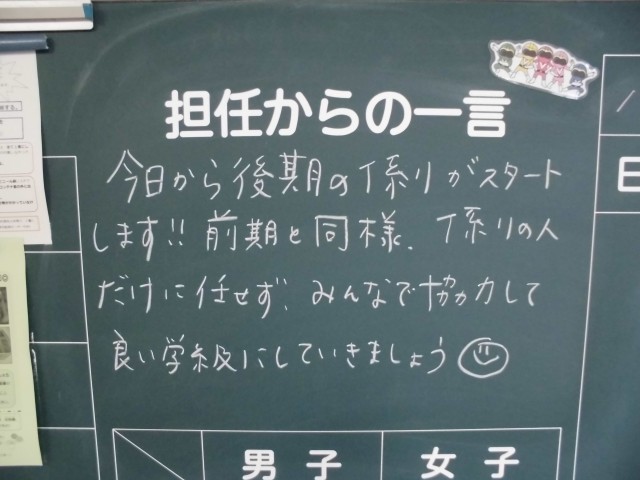 担任からの一言
今日から後期の係りがスタート
します!! 前期と同様、係りの人
だけに任せず、みんなで協力して
良い学級にしていきましょう
日
男子
女子